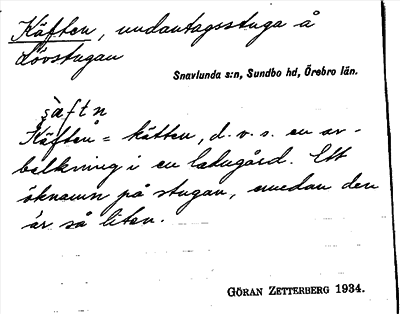 Käften, undantagsstuga å
Lövstugan
Snavlunda s:n, Sundbo hd, Örebro län.
ʂæftn
Käften = kätten, d.v.s. en av-
balkning i en ladugård. Ett
öknamn på stugan, emedan den
är så liten.
GÖRAN ZETTERBERG 1934.